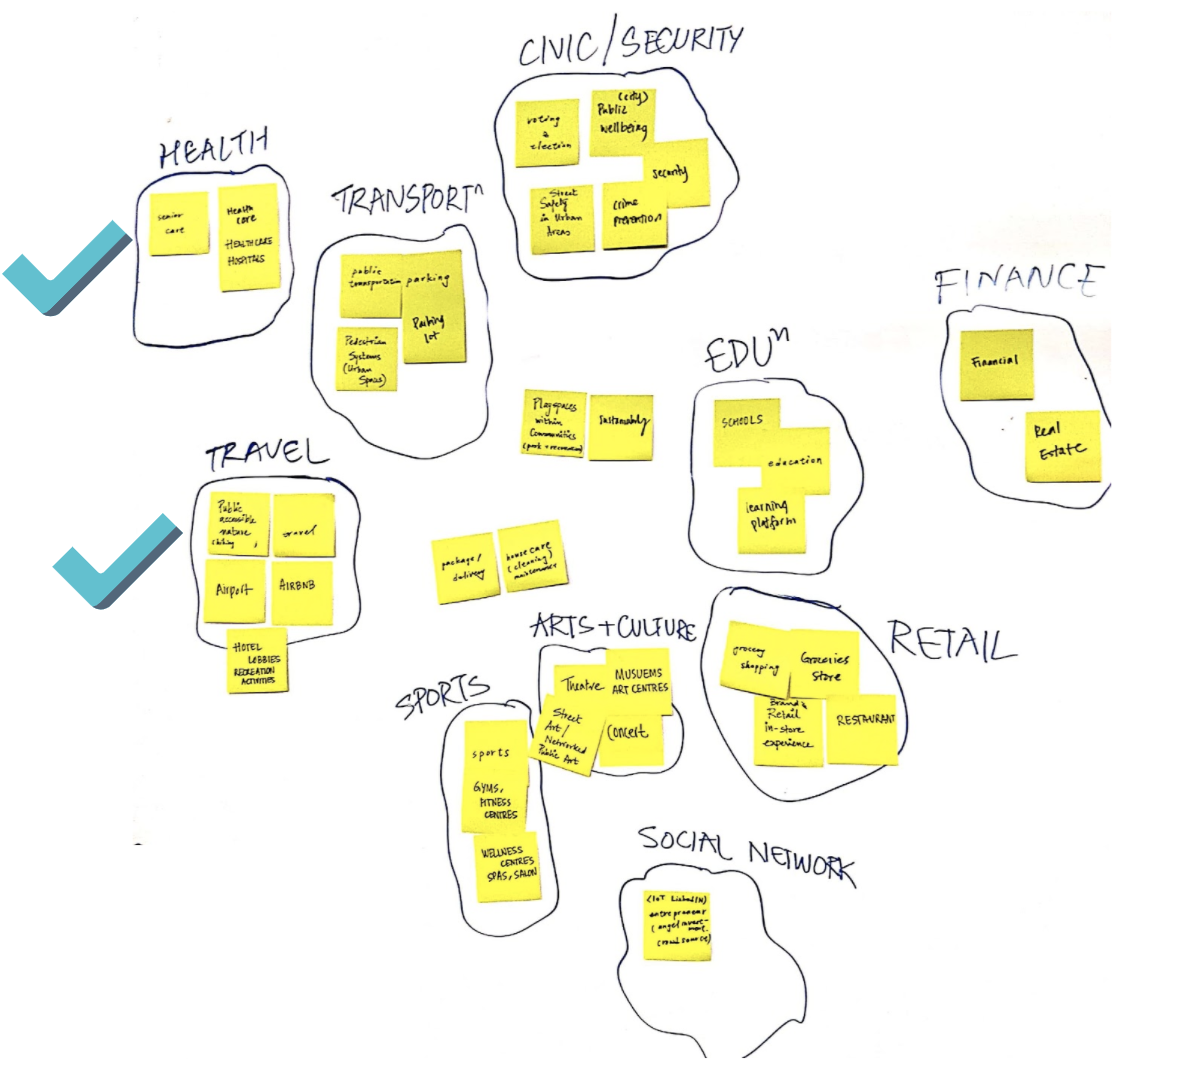 CIVIC/SECURITY
voting
&
election
(city)
Public
wellbeing
security
Street
Safety
in Urban
Areas
crime
prevention
HEALTH
senior
care
Health
care
HEALTHCARE
HOSPITALS
TRANSPORTⁿ
public
transportation
parking
Parking
lot
Pedestrian
Systems
(Urban
Spaces)
FINANCE
Financial
Real
Estate
EDUⁿ
SCHOOLS
education
learning
platform
Playspaces
within
Communities
(park + recreation)
Sustainably
TRAVEL
Public
accessible
nature
travel
Airport
AIRBNB
HOTEL
LOBBIES
RECREATION
ACTIVITIES
package/
delivery
house care
(cleaning)
maintenance
ARTS + CULTURE
Theatre
MUSUEMS
ART CENTRES
Street
Art/
Networked
Public Art
Concert
RETAIL
grocery
shopping
Groceries
Store
Brand &
Retail
in-store
experience
RESTAURANT
SPORTS
sports
GYMS,
FITNESS
CENTRES
WELLNESS
CENTRES
SPAS, SALON
SOCIAL NETWORK
(IoT LinkedIN)
entrepreneur
(angel invest-
ment.
crowd source)